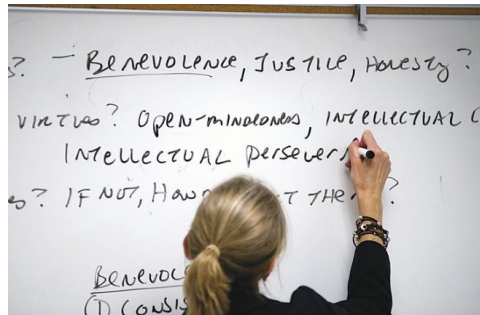 s? — Benevolence, Justice, Honesty?
virtues? Open-mindedness, Intellectual C
Intellectual persever
s? If not, How T THE ?
Benevol
① Consis